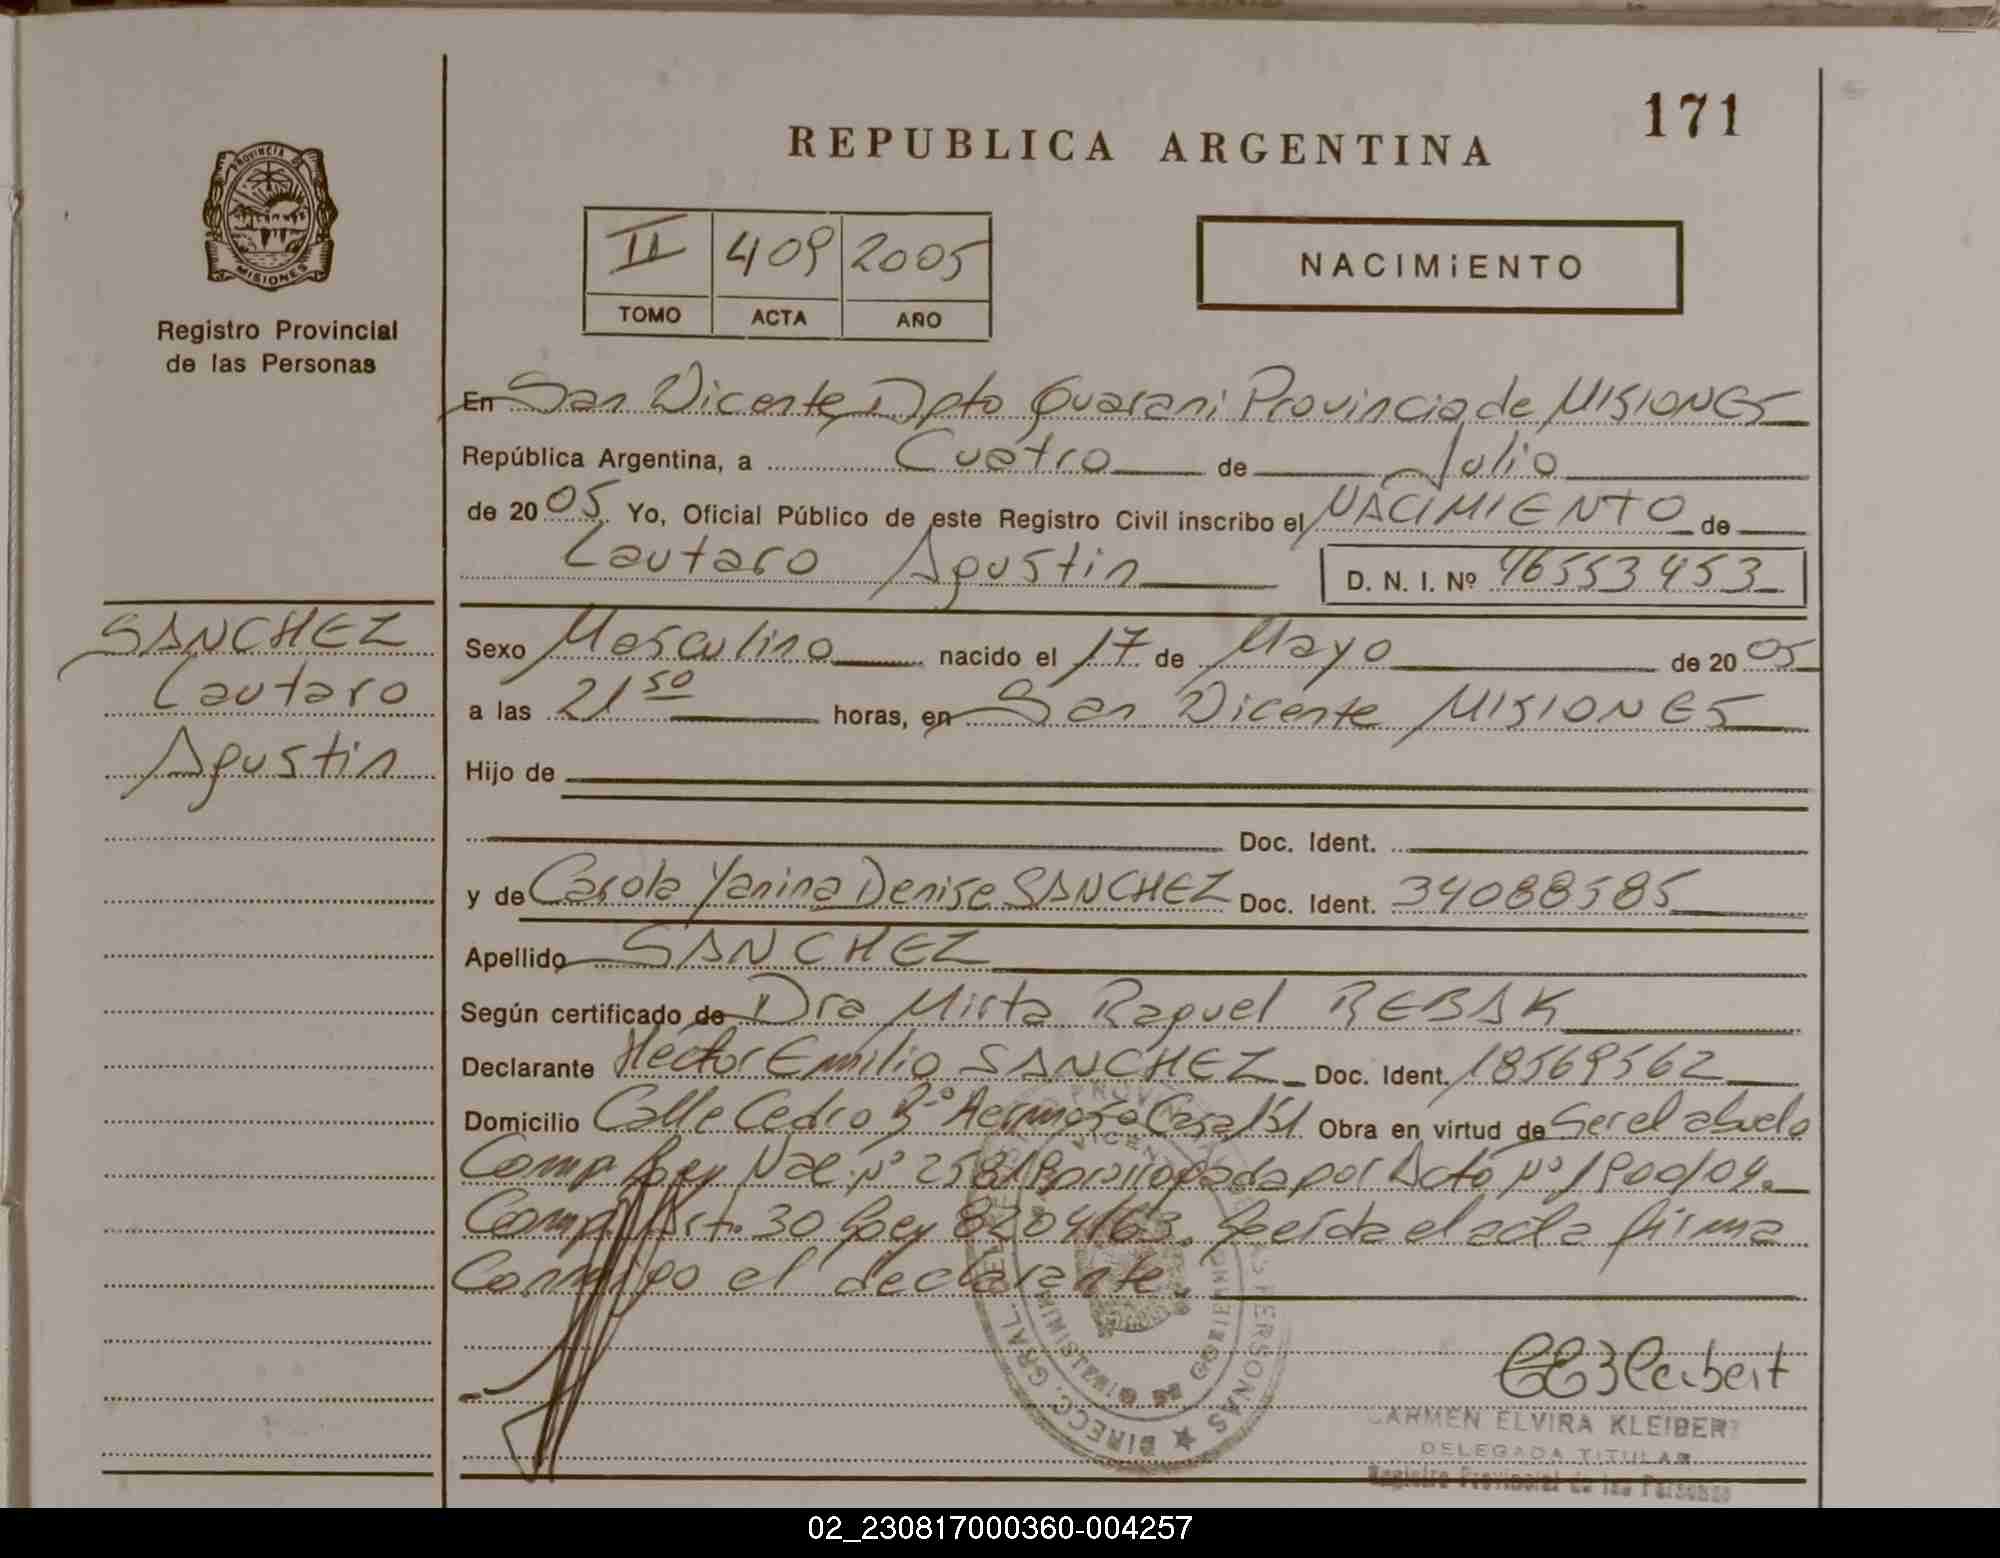 171
REPUBLICA ARGENTINA
PROVINCIA D
MISIONES
Registro Provincial
de las Personas
II 409 2005
TOMO ACTA AÑO
NACIMiENTO
En San Vicente Dpto Guarani Provincia de MISIONES
República Argentina, a Cuatro de Julio
de 2005 Yo, Oficial Público de este Registro Civil inscribo el NACIMIENTO de
Lautaro Agustin D. N. I. Nº 46553453
SANCHEZ
Lautaro
Agustin
Sexo Masculino nacido el 17 de Mayo de 2005
a las 21 50 horas, en San Vicente MISIONES
Hijo de
Doc. Ident.
y de Carola Yanina Denise SANCHEZ Doc. Ident. 34088585
Apellido SANCHEZ
Según certificado de Dra Mirta Raquel REBAK
Declarante Héctor Emilio SANCHEZ Doc. Ident. 18569562
Domicilio Calle Cedro Bº Hermosa Casa 151 Obra en virtud de Ser el abuelo
Comp Ley Nac. Nº 25819 prorrogada por Dcto Nº 1900/04.
Comp. Art. 30 Ley 8204/63. Leída el acta firma
Conmigo el declarante.
DIRECC. GRAL. PERSONAS
MINISTERIO DE GOBIERNO
CARMEN ELVIRA KLEIBERT
DELEGADA TITULAR
Registro Provincial de las Personas
02_230817000360-004257